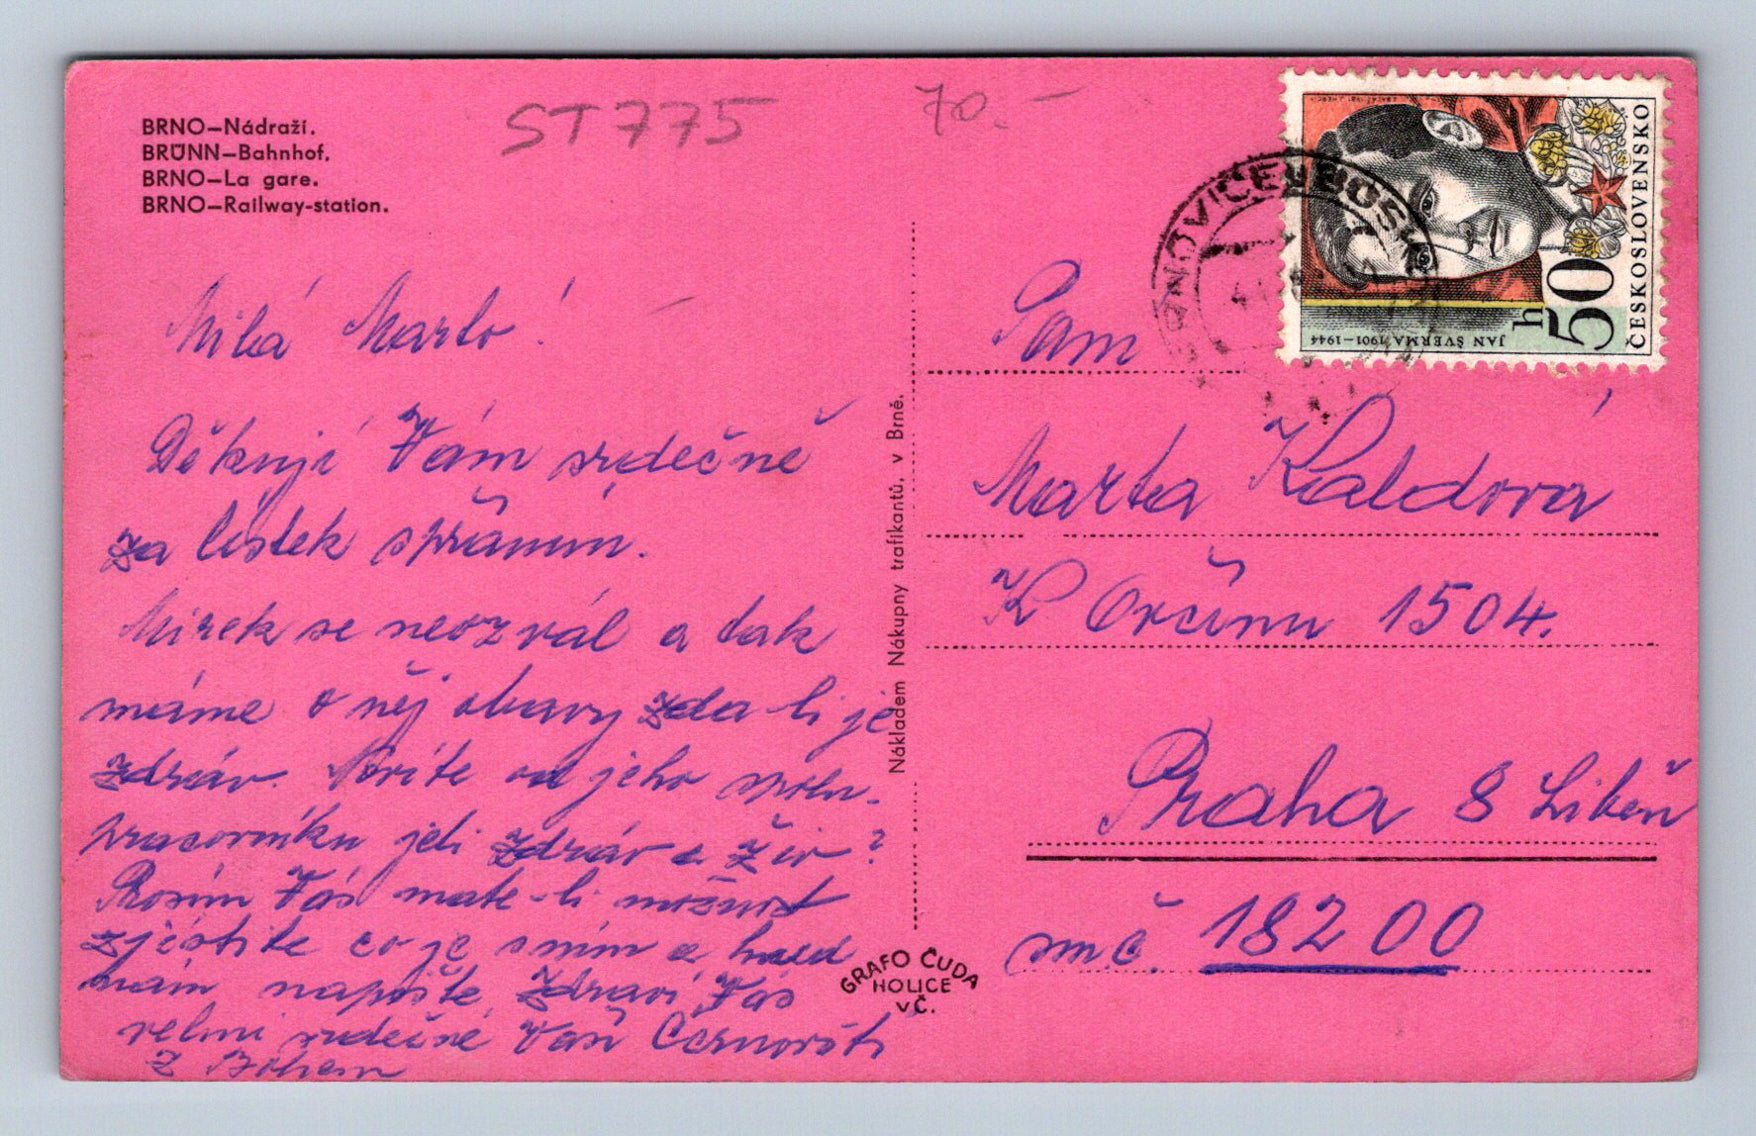 BRNO—Nádraží.
BRÜNN—Bahnhof.
BRNO—La gare.
BRNO—Railway-station.
ST 775
70.—
Milá Marto!
Děkuji Vám srdečně
za lístek s přáním.
Mirek se neozval a tak
máme o něj obavy zda-li je
zdráv. Víte od jeho spolu-
pracovníku jeli zdráv a živ?
Prosím Vás mate-li možnost
zjistite co je s ním a hned
nám napište. Zdraví Vás
velmi srdečně Vaši Černovští
Z Bohem
Nákladem Nákupny trafikantů, v Brně.
GRAFO ČUDA
HOLICE
VČ.
BOSK
ČESKOSLOVENSKO
50 h
JAN ŠVERMA 1901–1944
Pam
Marta Kaldová
K Orčínu 1504.
Praha 8 Libeň
sm.č. 182 00